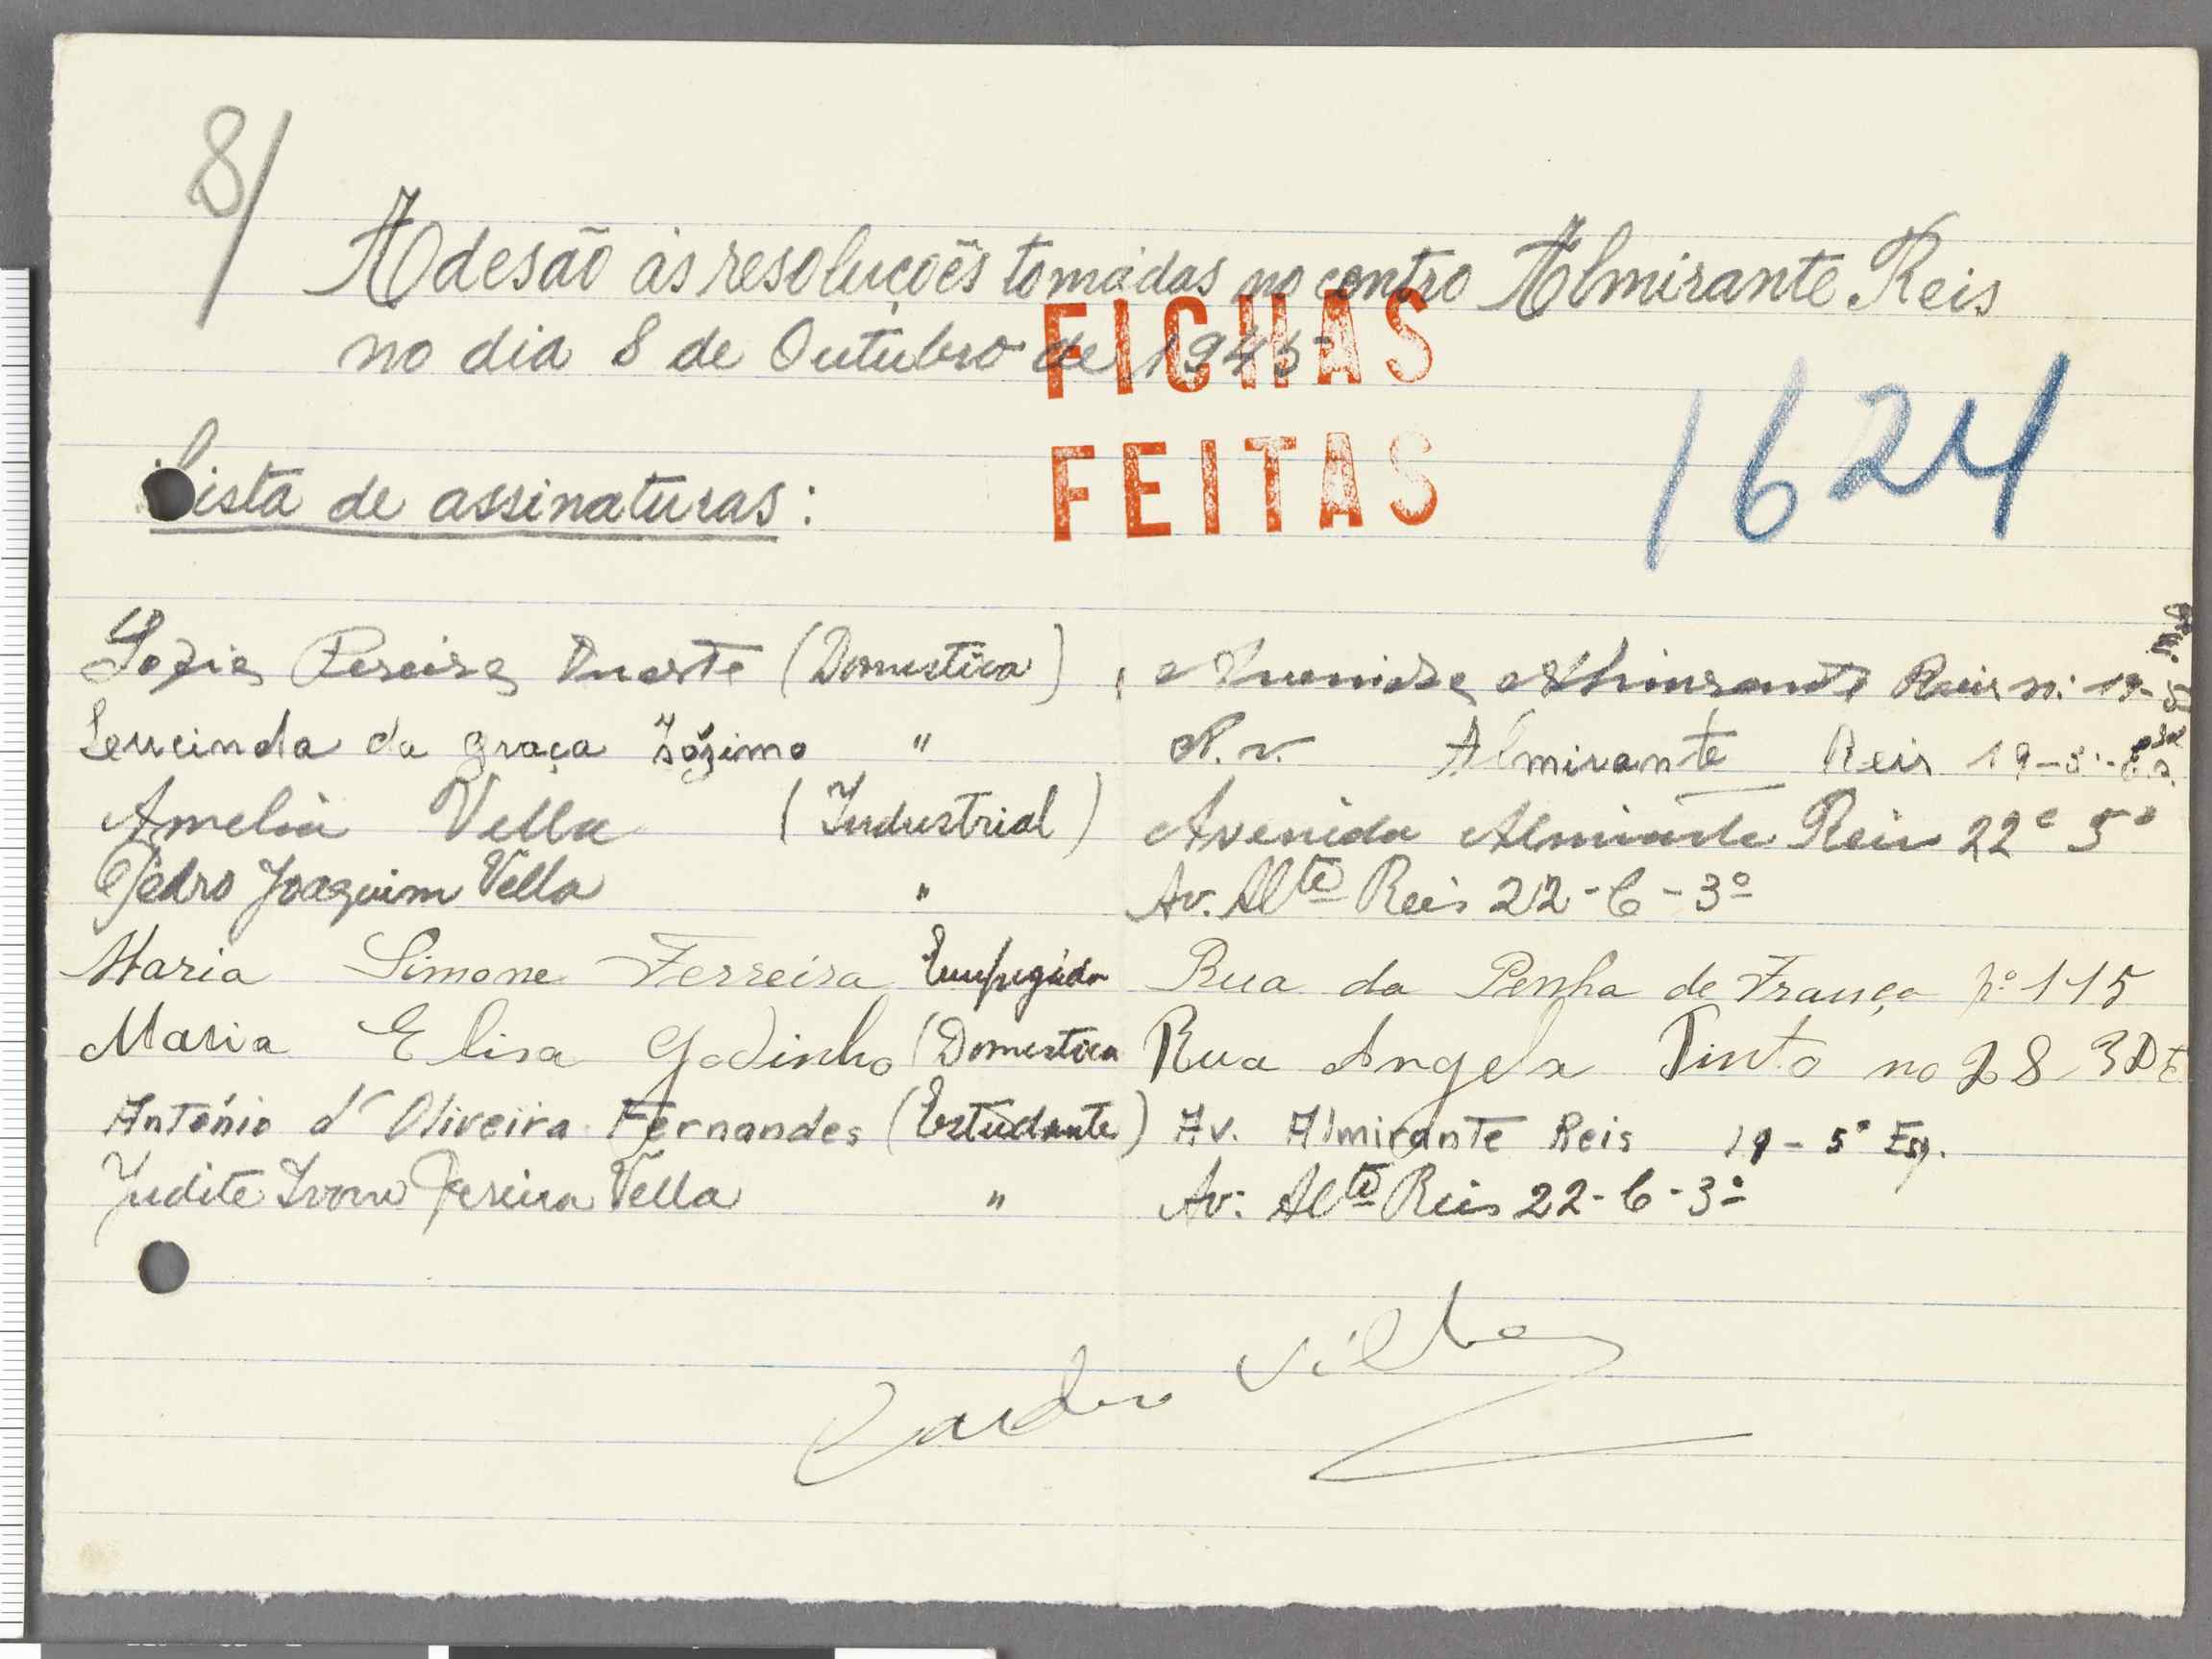 8/
Adesão às resoluções tomadas no centro Almirante Reis
no dia 8 de Outubro de 1945
FICHAS
FEITAS
1624
Lista de assinaturas:
Pereira Duarte (Domestica), Avenida Almirante Reis n: 19-5
Leucinda da graça Zózimo " A.v. Almirante Reis 19-5
Amelia Vella (Industrial) Avenida Almirante Reis 22 C 5º
Pedro Joaquim Vella " Av. Alte Reis 22-C-3º
Maria Simone Ferreira Empregada Rua da Penha de França nº 115
Maria Elisa Godinho (Domestica Rua Angela Pinto no 28 3 Dt
António d'Oliveira Fernandes (Estudante) Av. Almirante Reis 19-5º Esq.
Judite Ivone Pereira Vella " Av: Alte Reis 22-C-3º